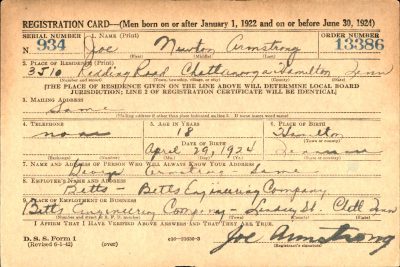 REGISTRATION CARD—(Men born on or after January 1, 1922 and on or before June 30, 1924)
SERIAL NUMBER 1. NAME (Print) ORDER NUMBER
N 934 Joe Newton Armstrong 13386
(First) (Middle) (Last)
2. PLACE OF RESIDENCE (Print)
3510 Redding Road Chattanooga Hamilton Tenn
(Number and street) (Town, township, village, or city) (County) (State)
[THE PLACE OF RESIDENCE GIVEN ON THE LINE ABOVE WILL DETERMINE LOCAL BOARD
JURISDICTION; LINE 2 OF REGISTRATION CERTIFICATE WILL BE IDENTICAL]
3. MAILING ADDRESS
Same
(Mailing address if other than place indicated on line 2. If same insert word same)
4. TELEPHONE 5. AGE IN YEARS 6. PLACE OF BIRTH
none 18 Hamilton
DATE OF BIRTH (Town or county)
April 29, 1924
(Exchange) (Number) (Mo.) (Day) (Yr.) (State or country)
7. NAME AND ADDRESS OF PERSON WHO WILL ALWAYS KNOW YOUR ADDRESS
George Armstrong Same
8. EMPLOYER'S NAME AND ADDRESS
Betts - Betts Engineering Company
9. PLACE OF EMPLOYMENT OR BUSINESS
Betts Engineering Company - St. Chatt Tenn
(Number and street or R. F. D. number) (Town) (County) (State)
I AFFIRM THAT I HAVE VERIFIED ABOVE ANSWERS AND THAT THEY ARE TRUE.
D. S. S. Form 1
(Revised 6-1-42) (over)
Joe Armstrong
(Registrant's signature)